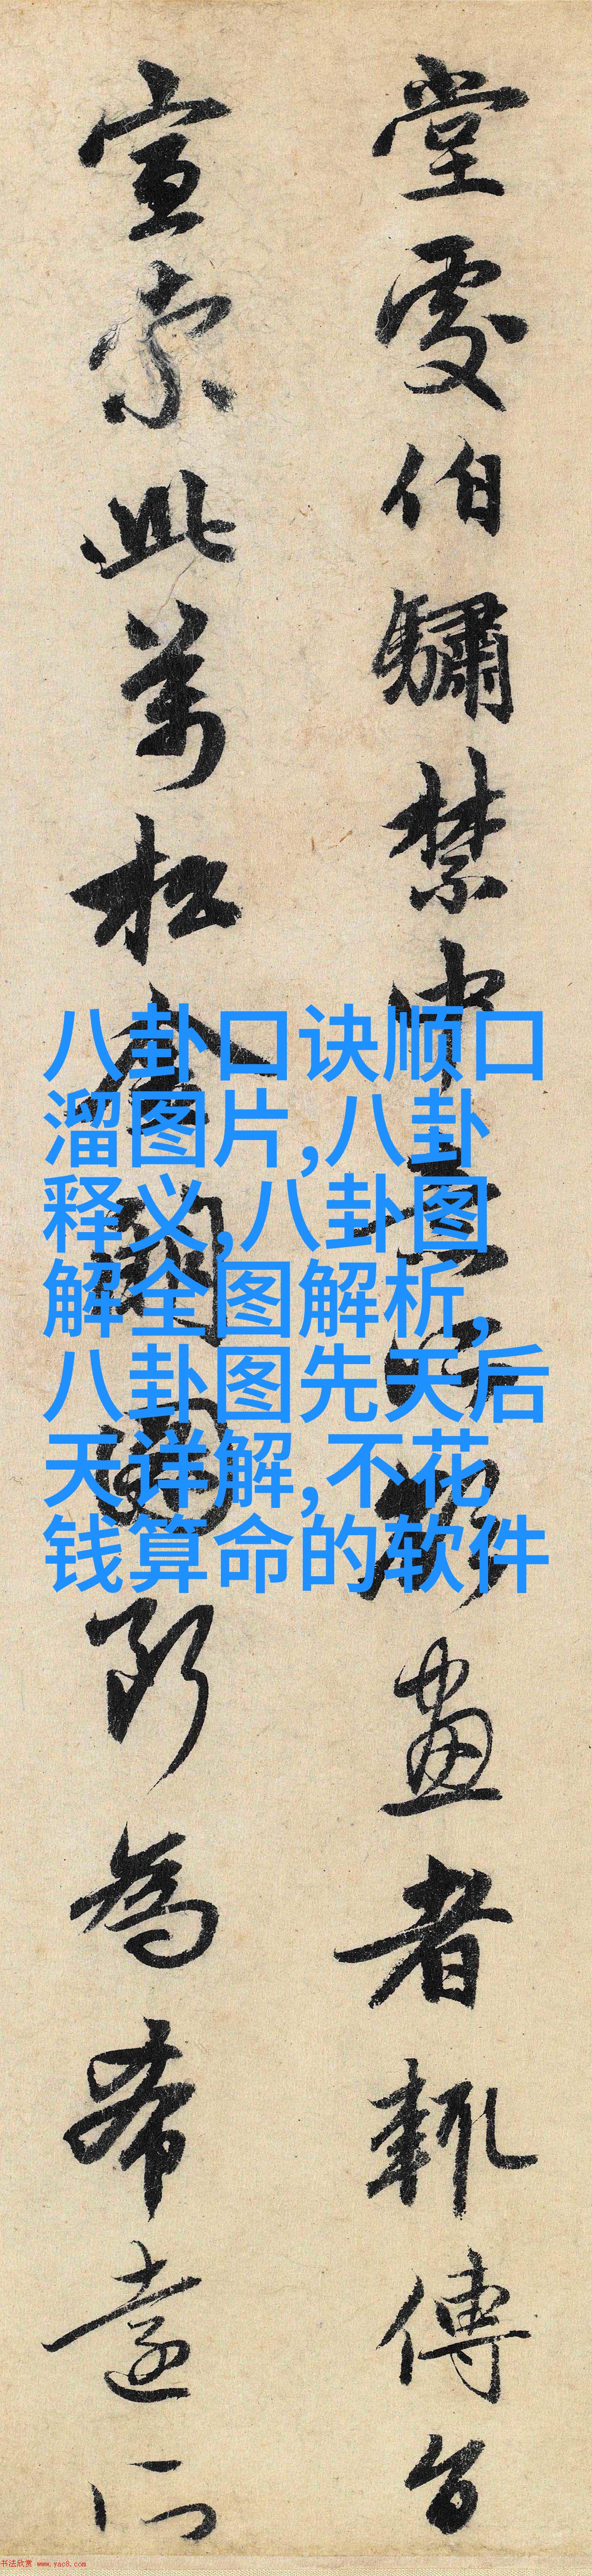 堂處伯驌禁中畫者輒傳旨
宣索此萬松金闕圖斷為希遠所
八卦口诀顺口
溜图片,八卦
释义,八卦图
解全图解析,
八卦图先天后
天详解,不花
钱算命的软件
书法欣赏 www.yac8.com